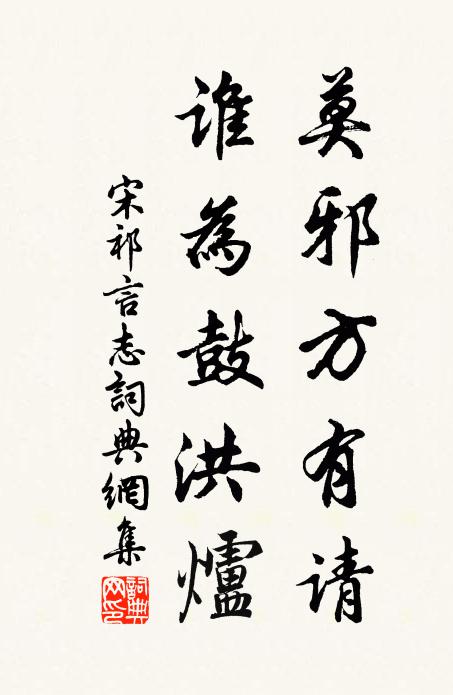 莫邪方有请
谁為鼓洪爐
宋祁言志詞典網集
詞典网印